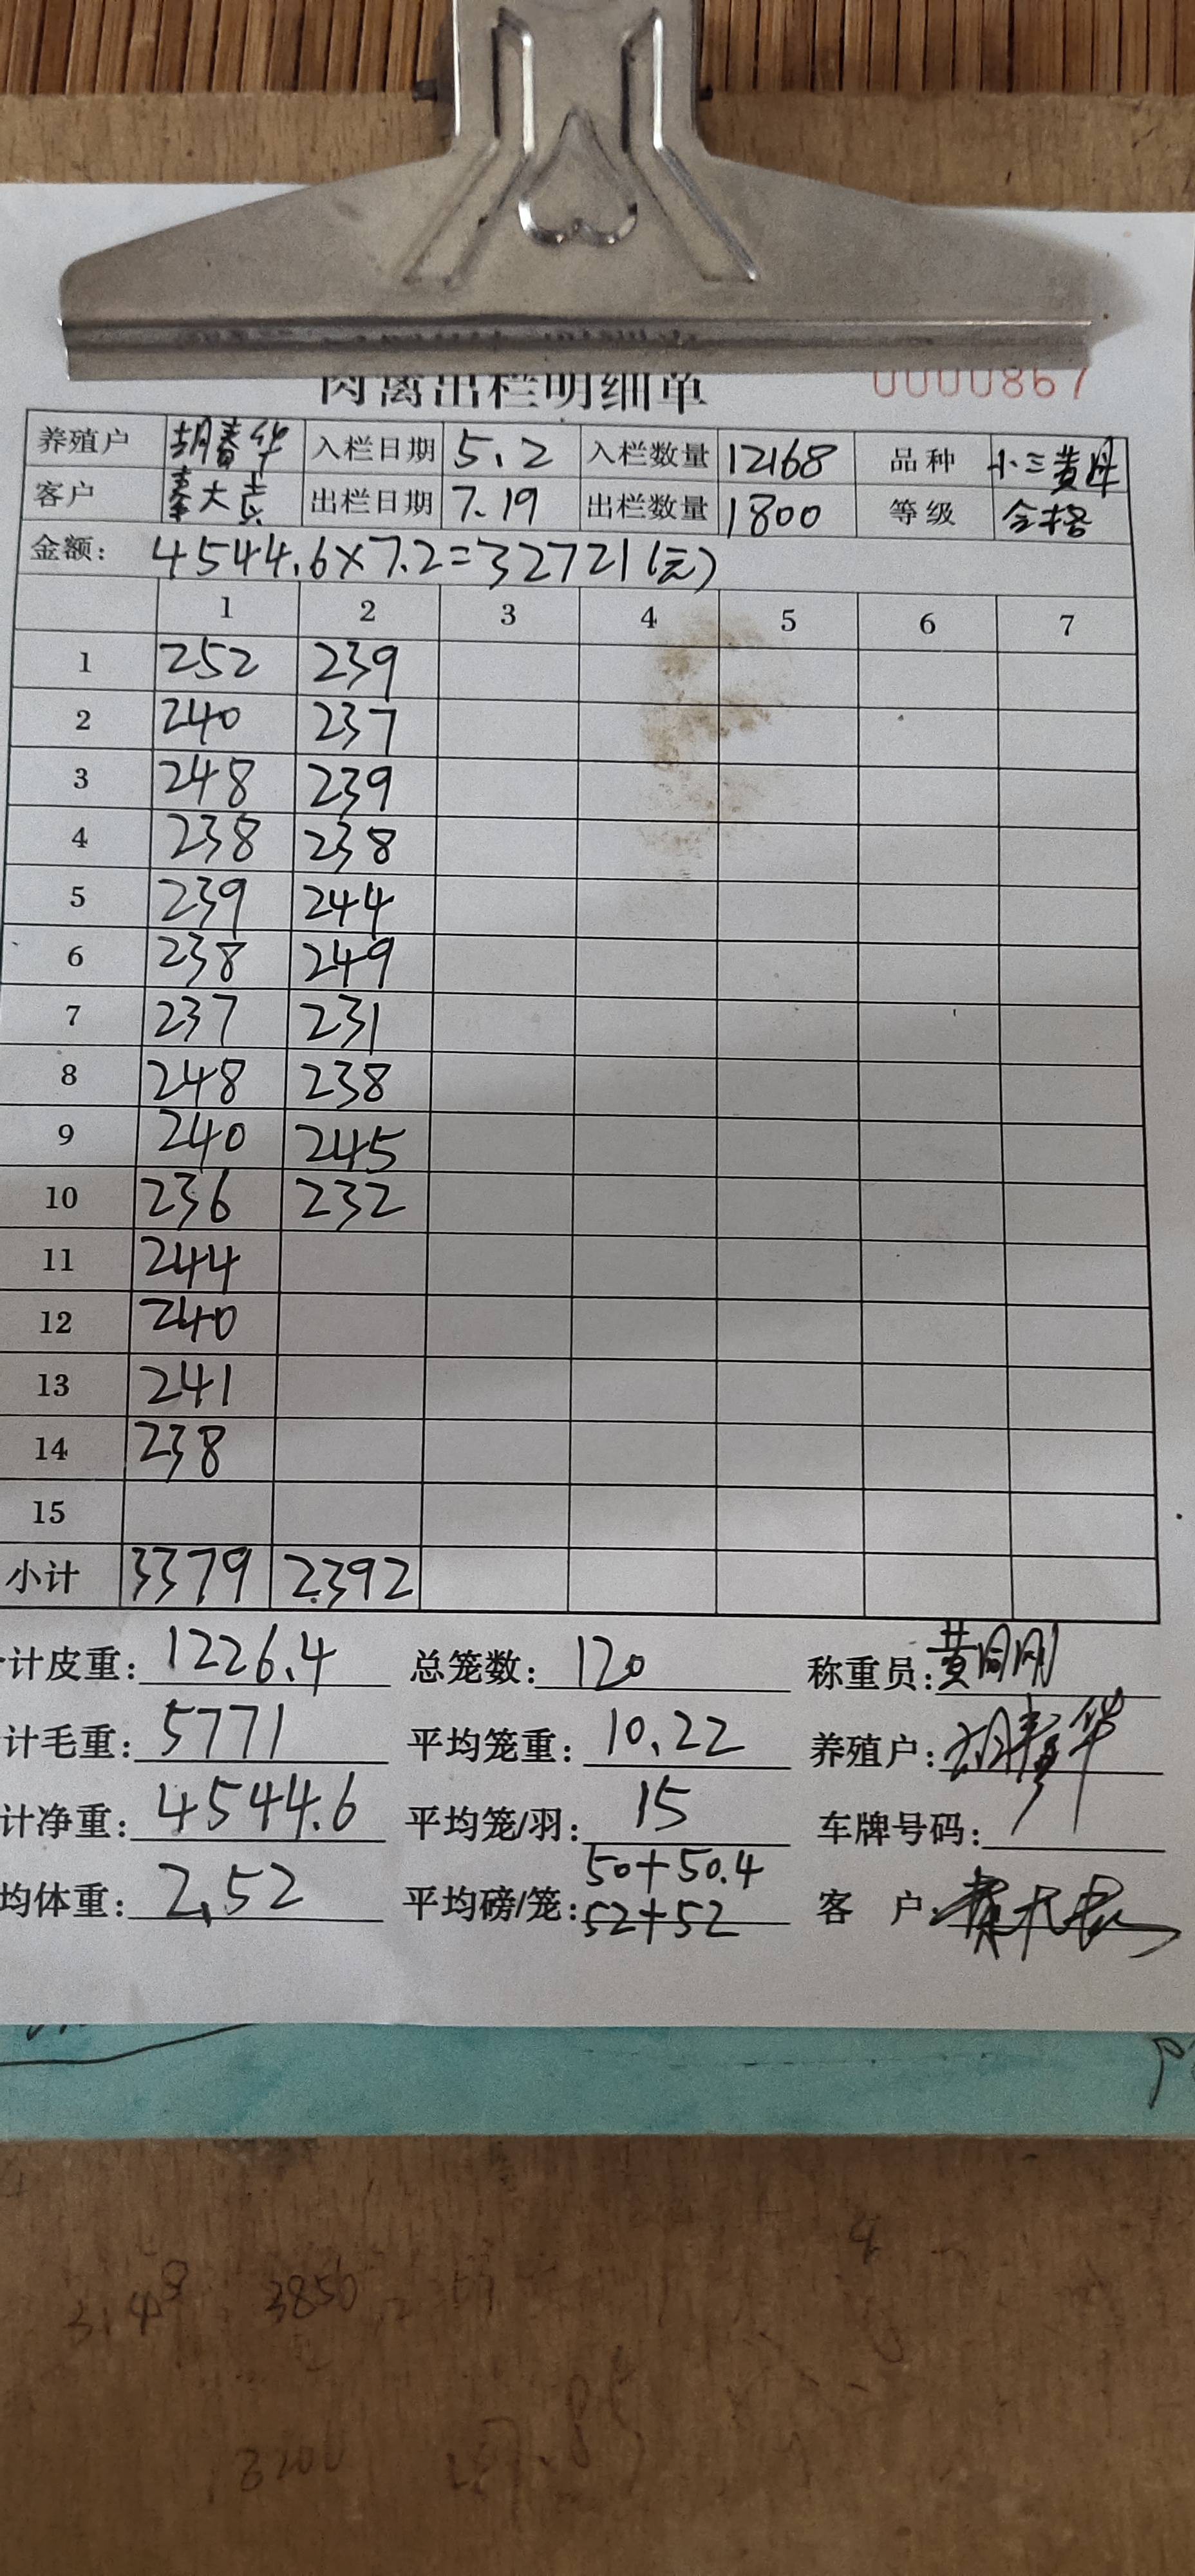 肉禽出栏明细单 0000867
养殖户 胡春华 入栏日期 5.2 入栏数量 12168 品种 小三黄
客户 秦大 出栏日期 7.19 出栏数量 1800 等级 合格
金额: 4544.6×7.2=32721(元)
1 2 3 4 5 6 7
1 252 239
2 240 237
3 248 239
4 238 238
5 239 244
6 238 249
7 237 231
8 248 238
9 240 245
10 236 232
11 244
12 240
13 241
14 238
15
小计 3379 2392
计皮重: 1226.4 总笼数: 120 称重员: 黄
计毛重: 5771 平均笼重: 10.22 养殖户: 胡春华
计净重: 4544.6 平均笼/羽: 15 车牌号码:
均体重: 2.52 平均磅/笼: 50+50.4 52+52 客户:
3850